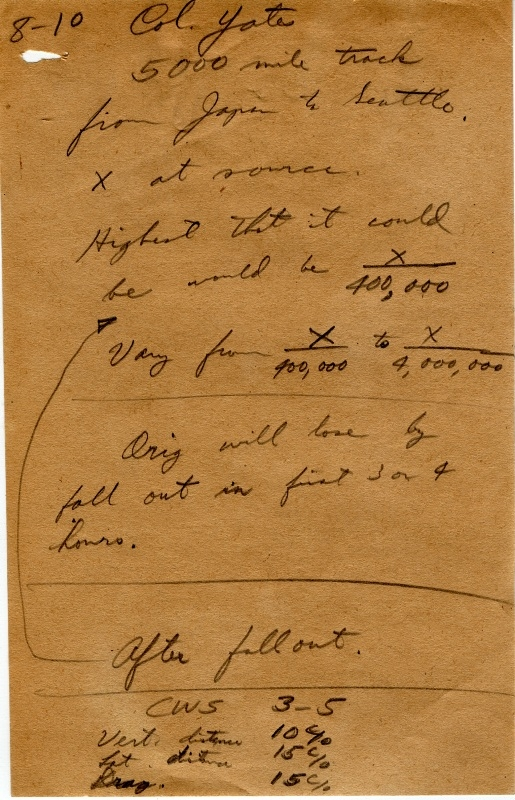 8-10 Col. Yates
5000 mile track
from Japan to Seattle.
X at source.
Highest that it could
be would be X/400,000
Vary from X/400,000 to X/4,000,000
Orig will lose by
fall out in first 3 or 4
hours.
After fall out.
CWS 3-5
Vert. distance 10%
Lat. distance 15%
Drag. 15%